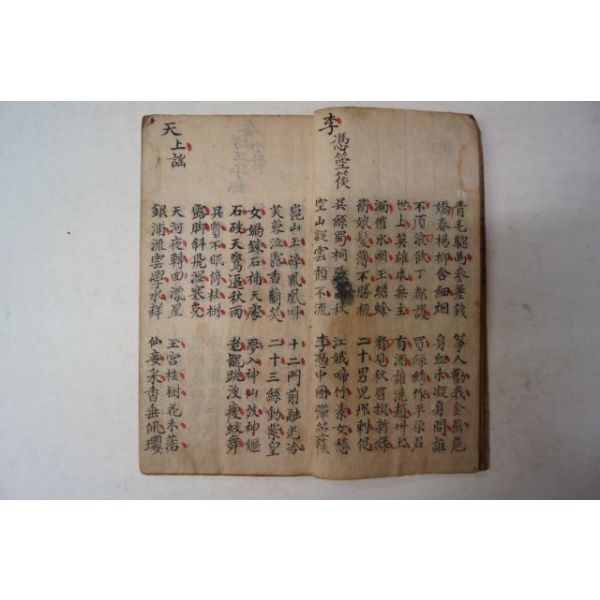 青毛驄馬參差錢 箏人勸我金屈巵
嬌春楊柳含細烟 身血未凝身問誰
不須浪飲丁都護 買絲綉作平原君
世上英雄本無主 有酒誰澆趙州土
漏催水咽玉蟾蜍 看見秋眉換新綠
衛娘髮薄不勝梳 二十男兒那刺促
李憑箜篌
吳絲蜀桐秋 江娥啼竹素女愁
空山凝雲頹不流 李憑中國彈箜篌
崑山玉碎鳳凰叫 十二門前融光冷
芙蓉泣露香蘭笑 二十三絲動紫皇
女媧鍊石補天處 夢入神山教神嫗
石破天驚逗秋雨 老魚跳波瘦蛟舞
吳質不眠倚桂樹
露脚斜飛濕寒兎
天上謠
天河夜轉回漂星 玉宮桂樹花未落
銀浦流雲學水聲 仙妾采香垂佩纓